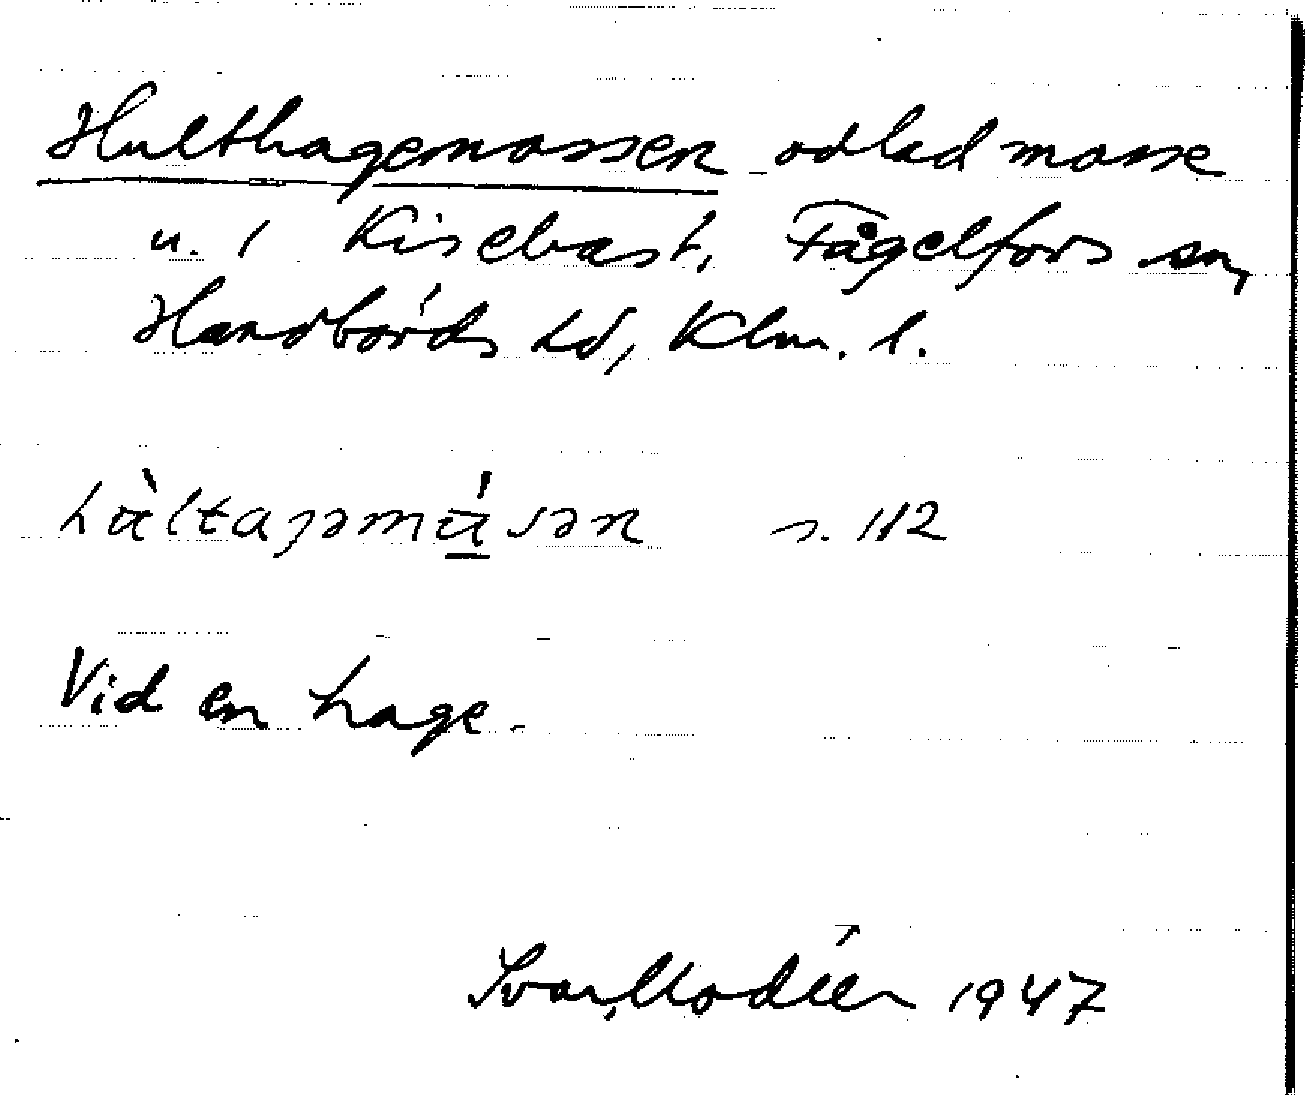 Hulthagemossen odlad mosse
u. 1 Kisebast, Fågelfors sn,
Handbörds hd, Klm. l.
s. 112
Vid en hage.
Ivar Modéer 1947